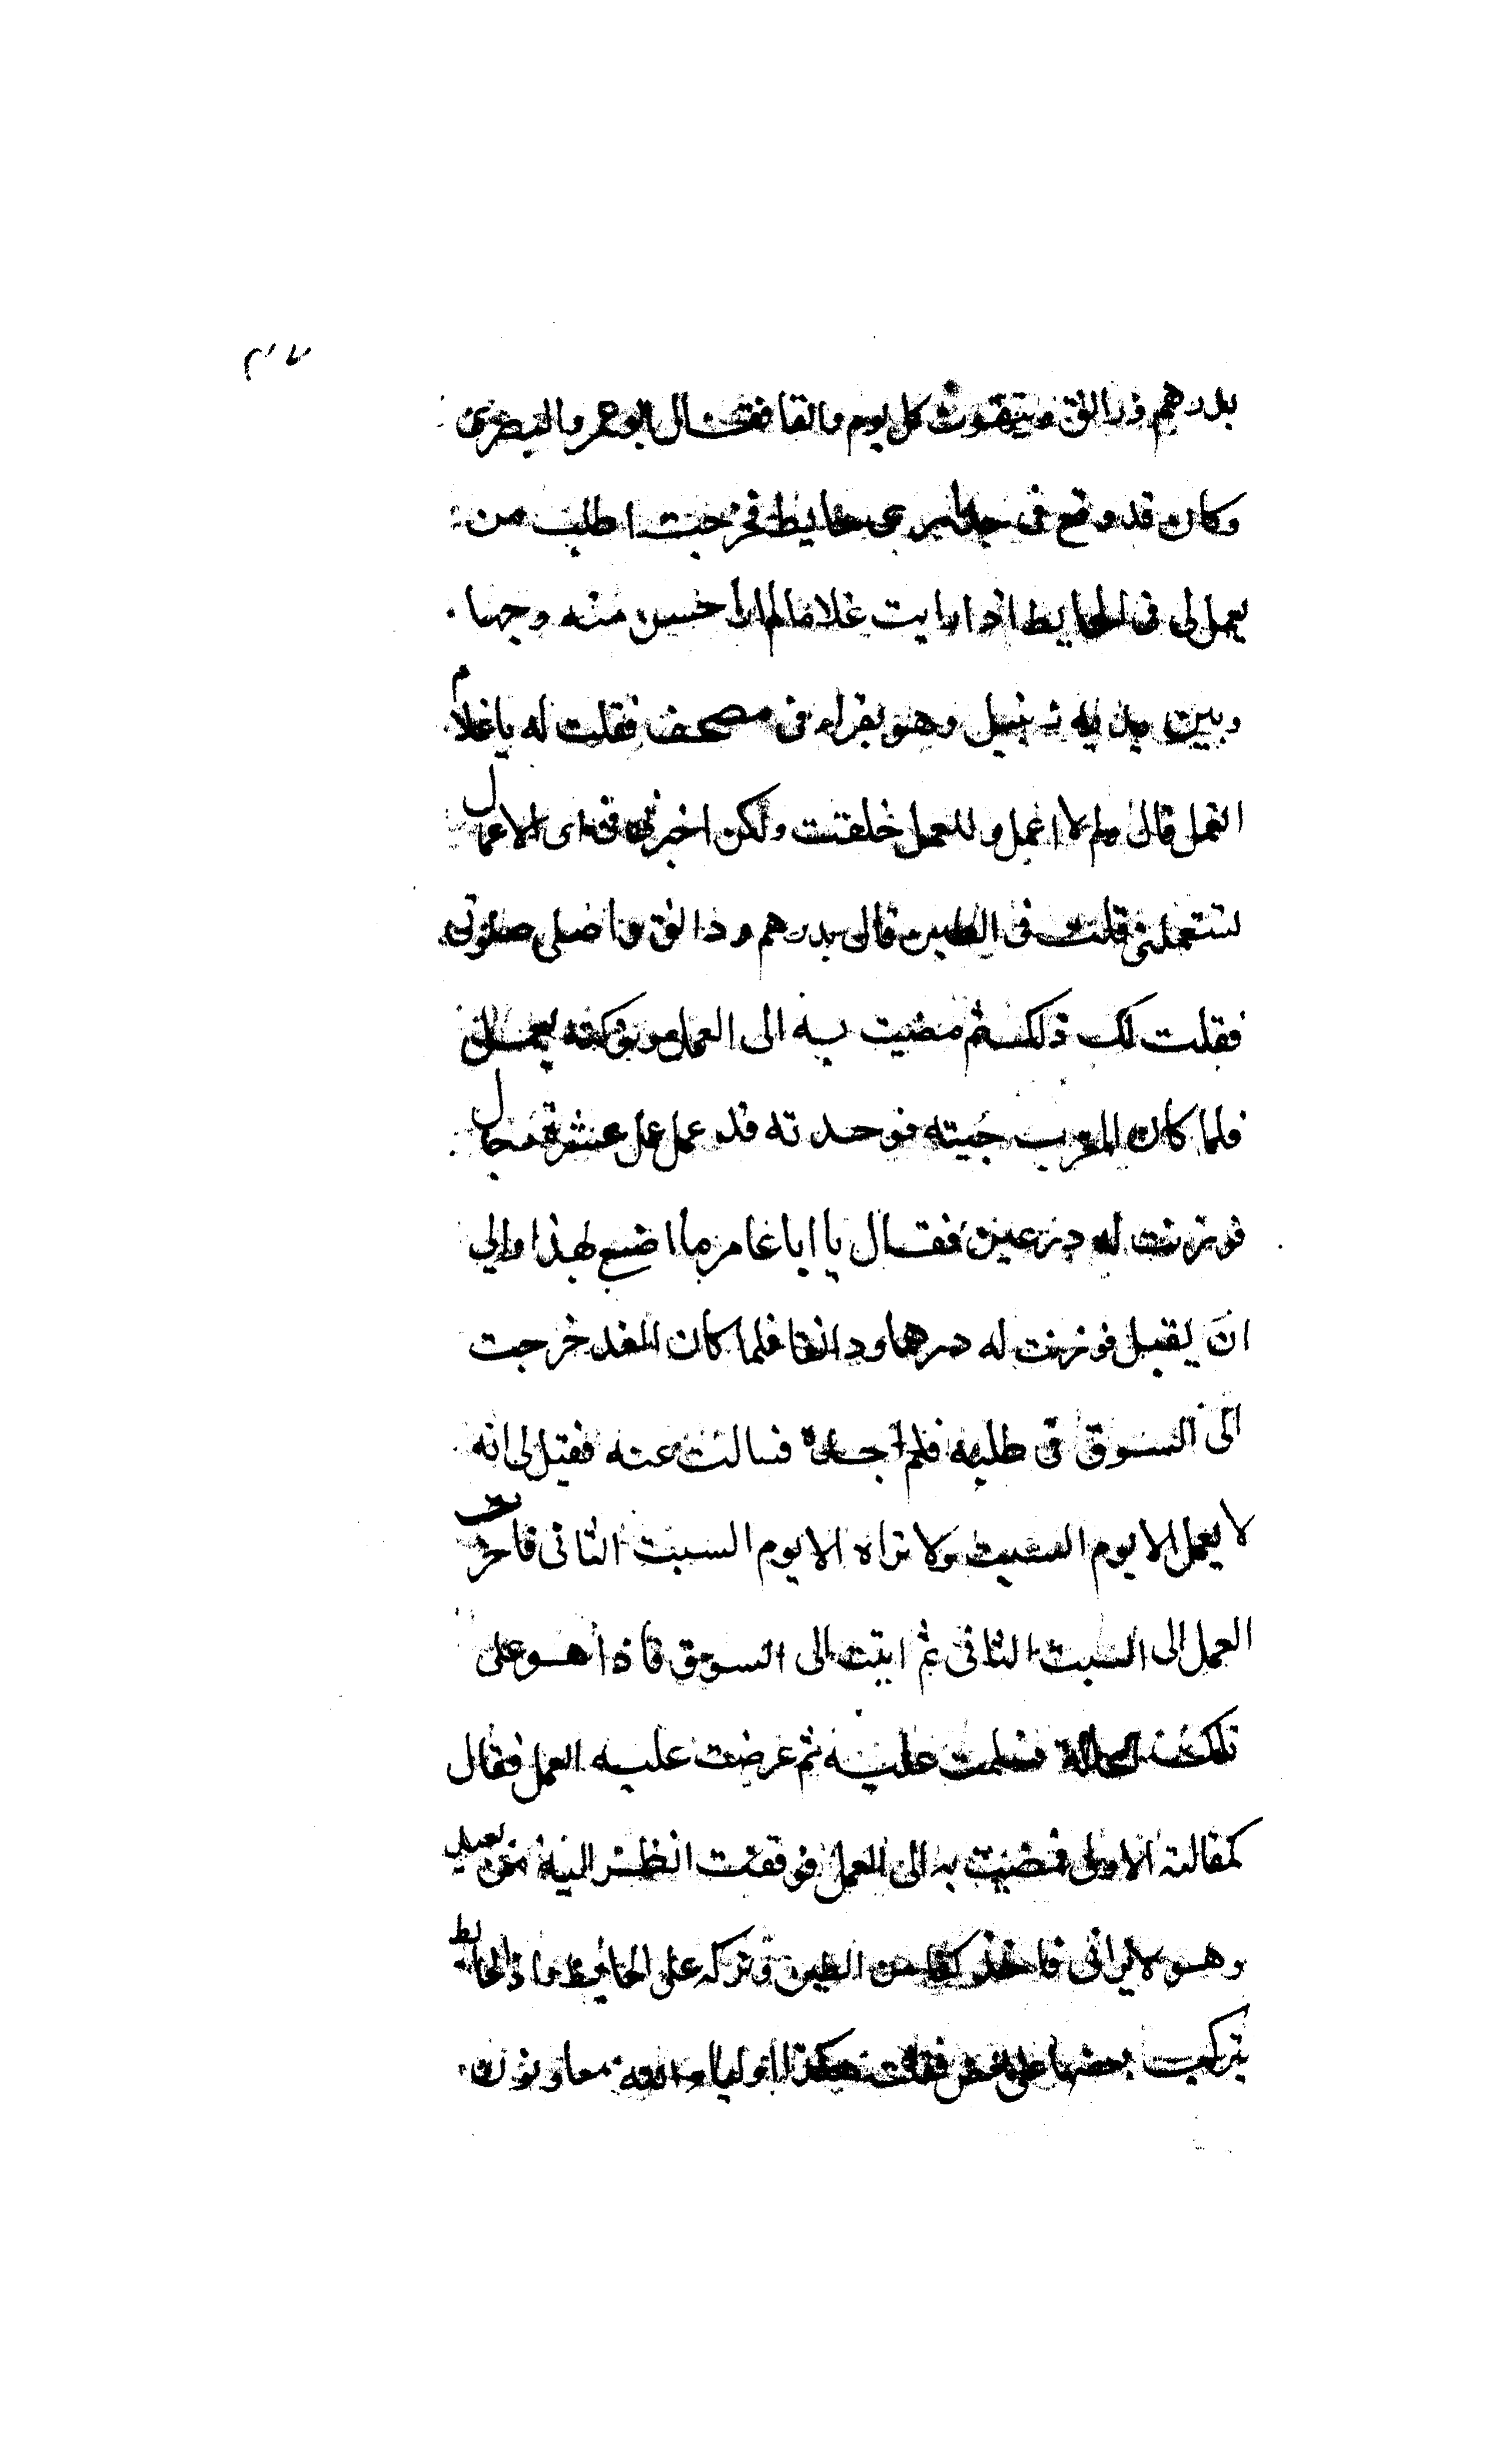 ٣٠٧
بدرهم ودانق ويتقوت كل يوم دانقا فقال ابو عمر والبصرى
وكان قد وقع فى جدارى حايط فخرجت اطلب من
يعمل لى فى الحايط اذا رايت غلاما لم ار احسن منه وجها
وبين يديه زنبيل وهو يقراء فى مصحف فقلت له يا غلام
اتعمل قال ولم لا اعمل وللعمل خلقت ولكن اخبرنى فى اى الاعمال
تستعملنى قلت فى الطين قال بدرهم ودانق واصلى صلوتى
فقلت لك ذلك ثم مضيت به الى العمل وتركته يعمل
فلما كان المغرب جيته فوجدته قد عمل عمل عشرة رجال
فوزنت له درهمين فقال يا ابا عامر ما اصنع بهذا وابى
ان يقبل فوزنت له درهما ودانقا فلما كان الغد خرجت
الى السوق فى طلبه فلم اجده فسالت عنه فقيل لى انه
لا يعمل الا يوم السبت ولا تراه الا يوم السبت الثانى فاخرت
العمل الى السبت الثانى ثم اتيت الى السوق فاذا هو على
تلك الحالة فسلمت عليه ثم عرضت عليه العمل فقال
كمقالته الاولى فمضيت به الى العمل فوقفت انظر اليه من بعيد
وهو لا يرانى فاخذ كفا من الطين وتركه على الحايط فاذا الحايط
يتركب بعضها على بعض فقلت هكذا اوليا الله معاونون